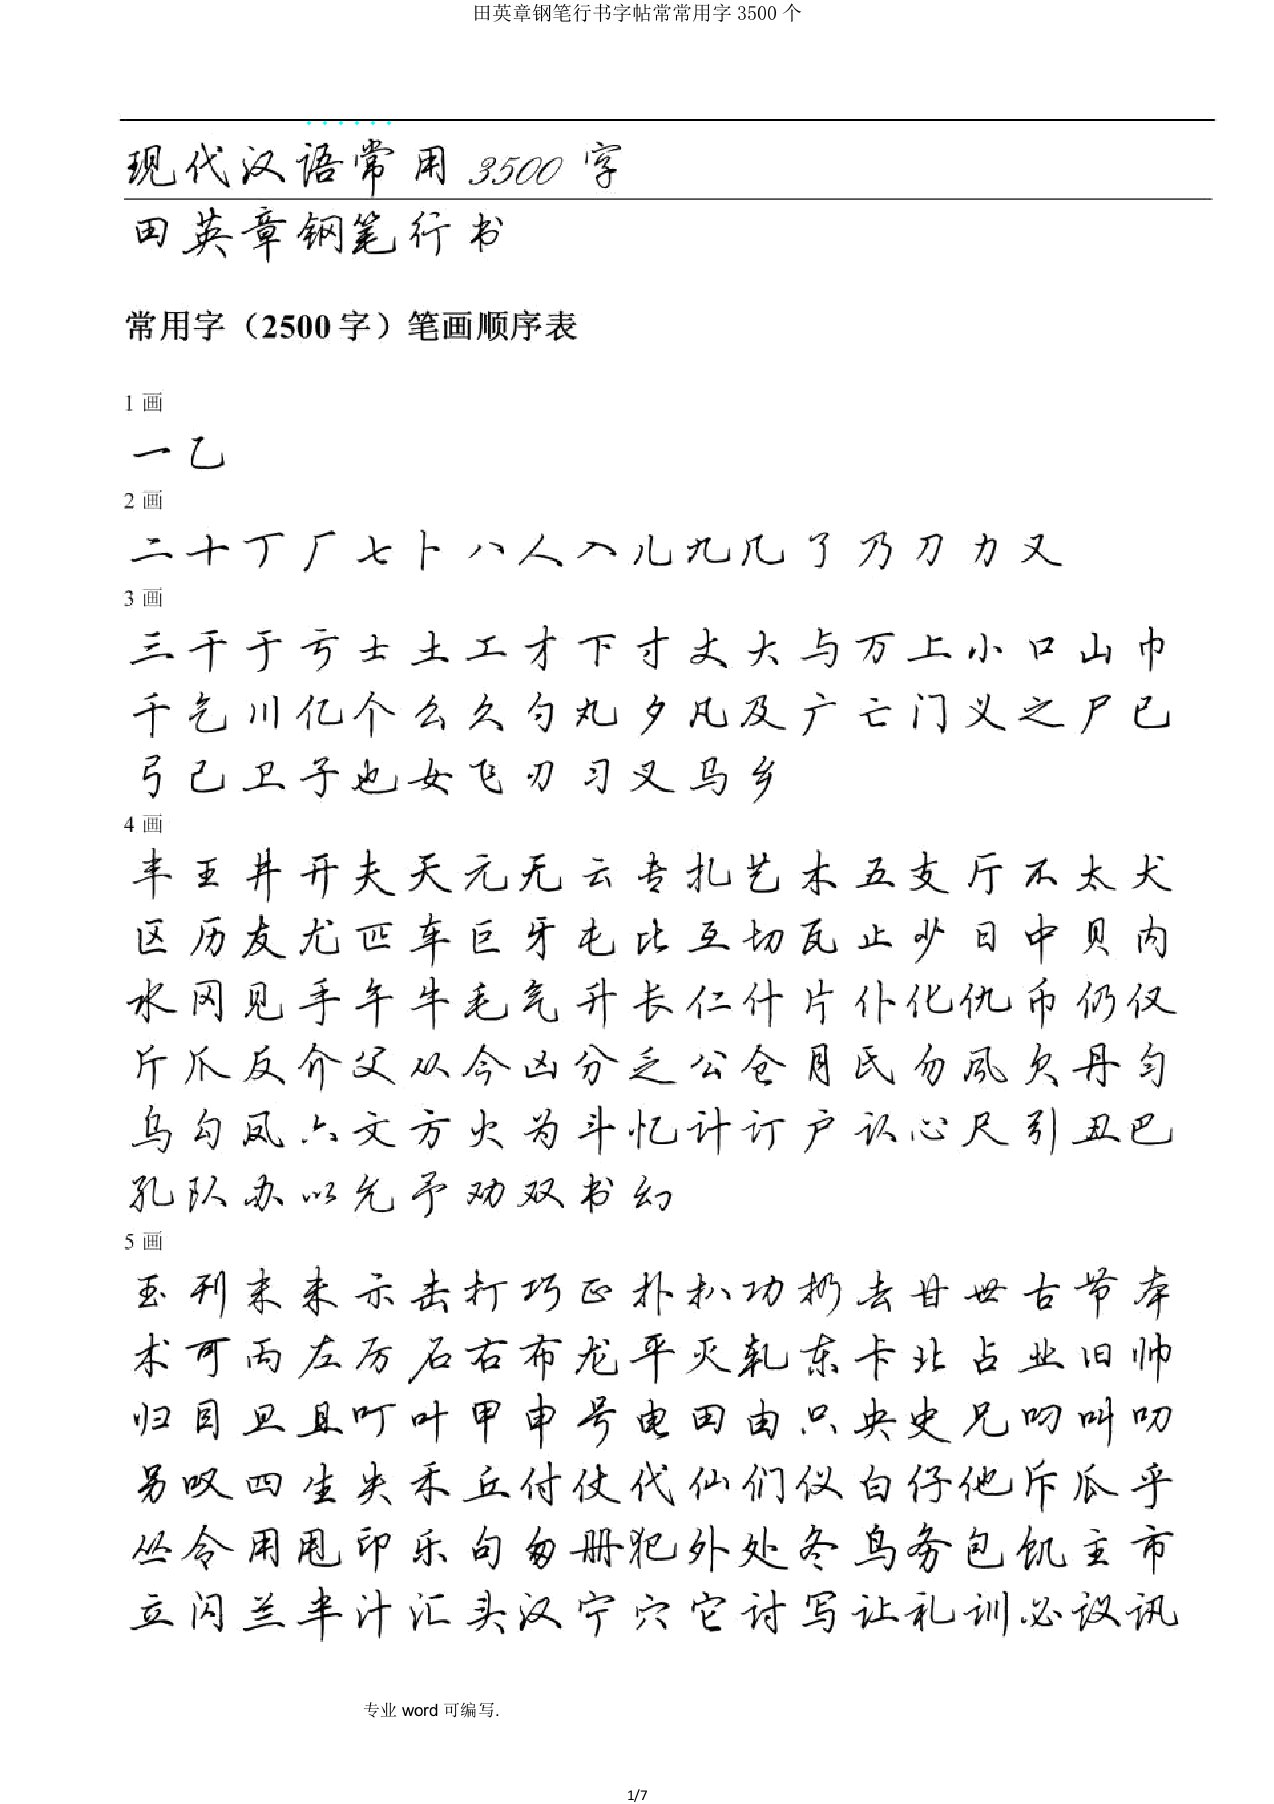 田英章钢笔行书字帖常常用字 3500 个
现代汉语常用 3500 字
田英章钢笔行书
常用字（2500 字）笔画顺序表
1 画
一乙
2 画
二十丁厂七卜八人入儿九几了乃刀力又
3 画
三干于亏士土工才下寸丈大与万上小口山巾
千乞川亿个么久勺丸夕凡及广亡门义之尸已
弓己卫子也女飞刃习叉马乡
4 画
丰王井开夫天元无云专扎艺木五支厅不太犬
区历友尤匹车巨牙屯比互切瓦止少日中贝内
水冈见手午牛毛气升长仁什片仆化仇币仍仅
斤爪反介父从今凶分乏公仓月氏勿风欠丹匀
乌勾凤六文方火为斗忆计订户认心尺引丑巴
孔队办以允予劝双书幻
5 画
玉刊未末示击打巧正扑扒功扔去甘世古节本
术可丙左厉石右布龙平灭轧东卡北占业旧帅
归目旦且叮叶甲申号电田由只央史兄叼叫叨
另叹四生失禾丘付仗代仙们仪白仔他斥瓜乎
丛令用甩印乐句匆册犯外处冬鸟务包饥主市
立闪兰半汁汇头汉宁穴它讨写让礼训必议讯
专业 word 可编写.
1/7